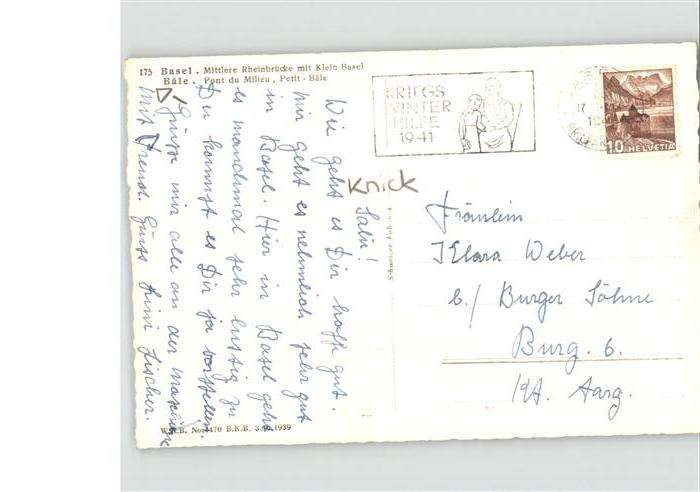 175 Basel. Mittlere Rheinbrücke mit Klein-Basel
Bâle. Pont du Milieu, Petit-Bâle
KRIEGS
WINTER
HILFE
1941
17.
10 HELVETIA
Knick
Salü!
Wie geht es Dir hoffe gut.
Mir geht es nehmlich sehr gut
in Basel. Hier in Basel geht
es manchmal sehr lustig zu
Du kannst es Dir ja vorstellen.
Grüsse mir alle an der Maschine
Mit Freund. Gruss Lini Fischer.
Fräulein
Klara Weber
b./ Burger Söhne
Burg. 6.
Kt. Aarg.
1939